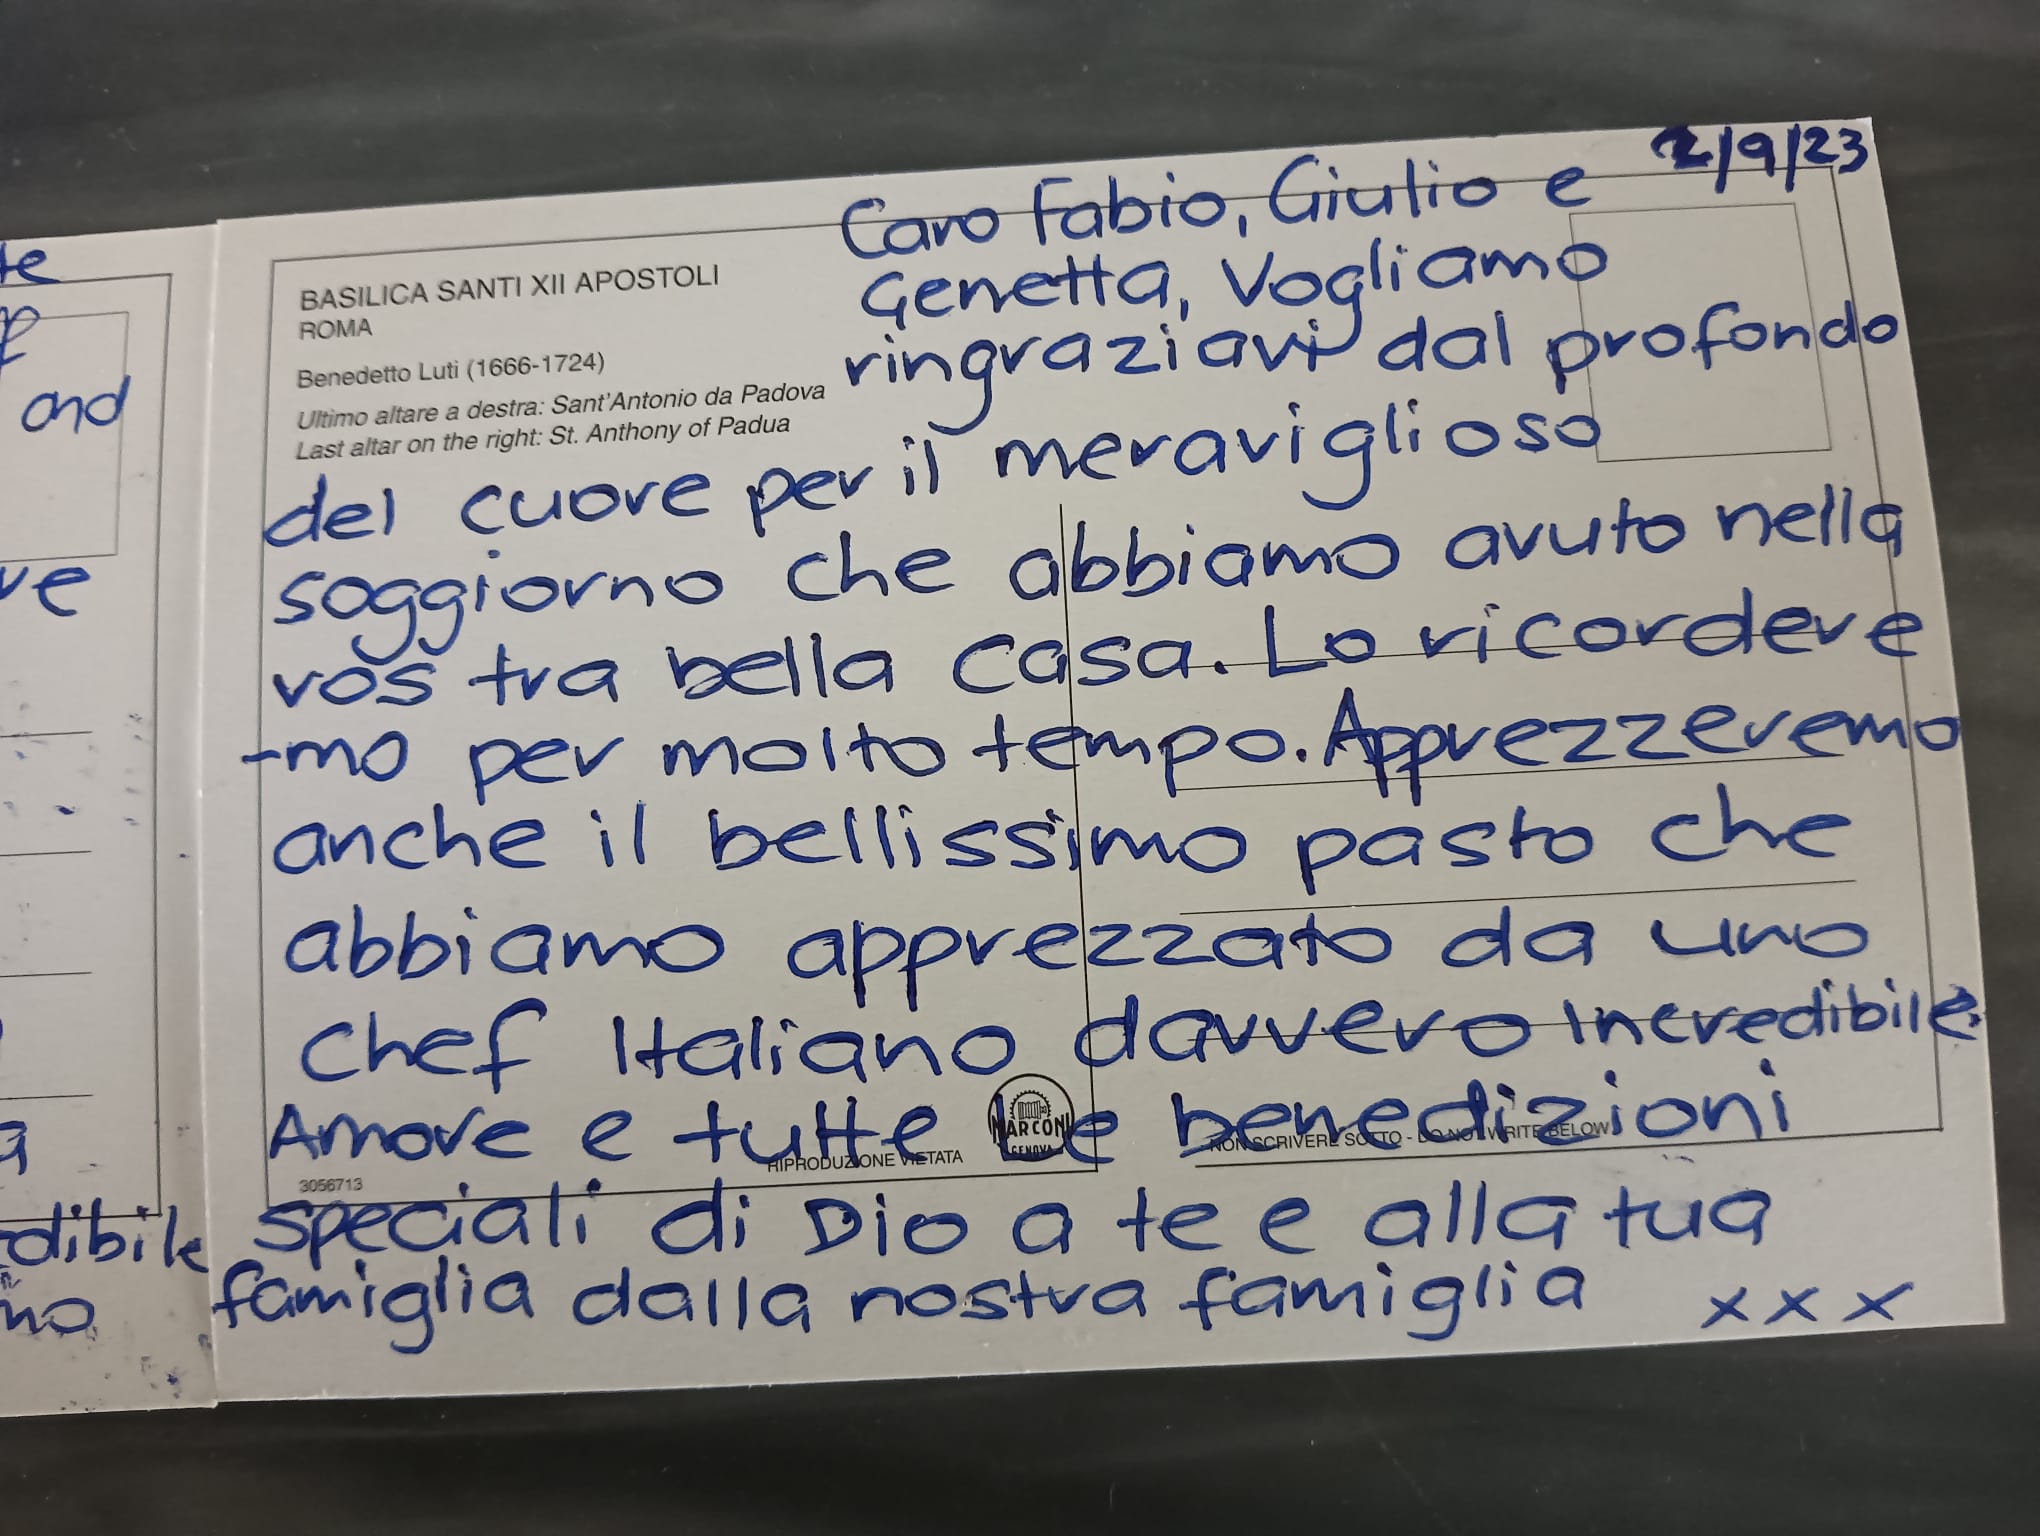 te
and
ve
dibile
no
2/9/23
Caro Fabio, Giulio e
Genetta, Vogliamo
ringraziavi dal profondo
del cuore per il meraviglioso
soggiorno che abbiamo avuto nella
vostra bella casa. Lo ricordere
-mo per molto tempo. Apprezzeremo
anche il bellissimo pasto che
abbiamo apprezzato da uno
chef Italiano davvero incredibile.
Amore e tutte le benedizioni
speciali di Dio a te e alla tua
famiglia dalla nostra famiglia xxx
BASILICA SANTI XII APOSTOLI
ROMA
Benedetto Luti (1666-1724)
Ultimo altare a destra: Sant'Antonio da Padova
Last altar on the right: St. Anthony of Padua
MARCONI
GENOVA
RIPRODUZIONE VIETATA
NON SCRIVERE SOTTO - DO NOT WRITE BELOW
3056713